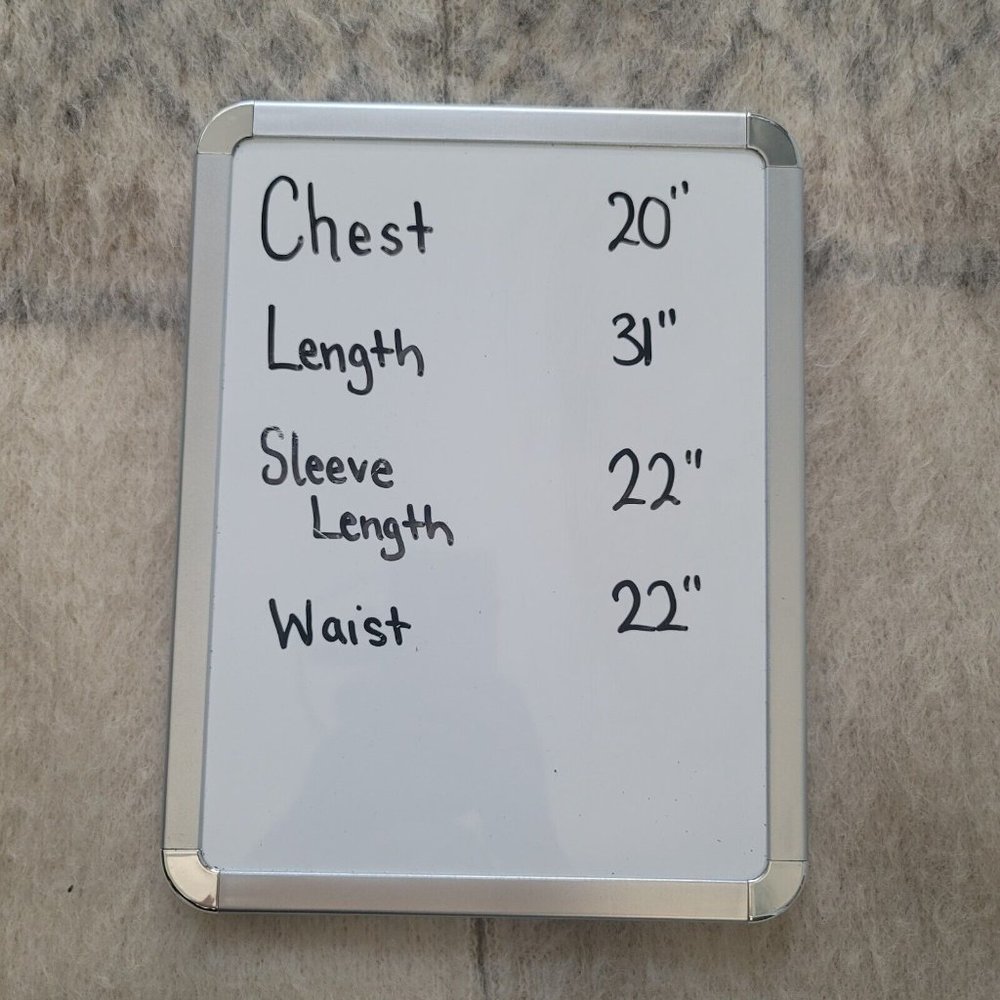 Chest 20"
Length 31"
Sleeve
Length 22"
Waist 22"